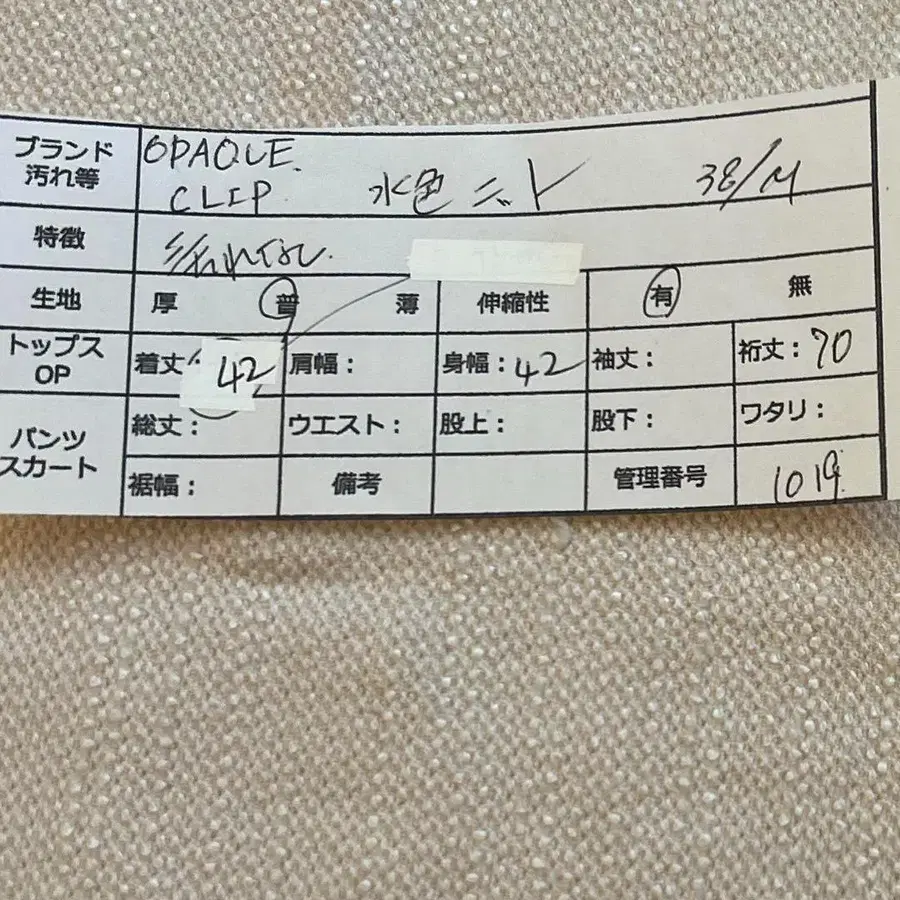 ブランド
汚れ等
OPAQUE.
CLIP 水色ニット 38/M
特徴
汚れなし.
生地 厚 普 薄 伸縮性 有 無
トップス
OP
着丈: 42 肩幅: 身幅:42 袖丈: 裄丈:70
パンツ
スカート
総丈: ウエスト: 股上: 股下: ワタリ:
裾幅: 備考 管理番号 1019